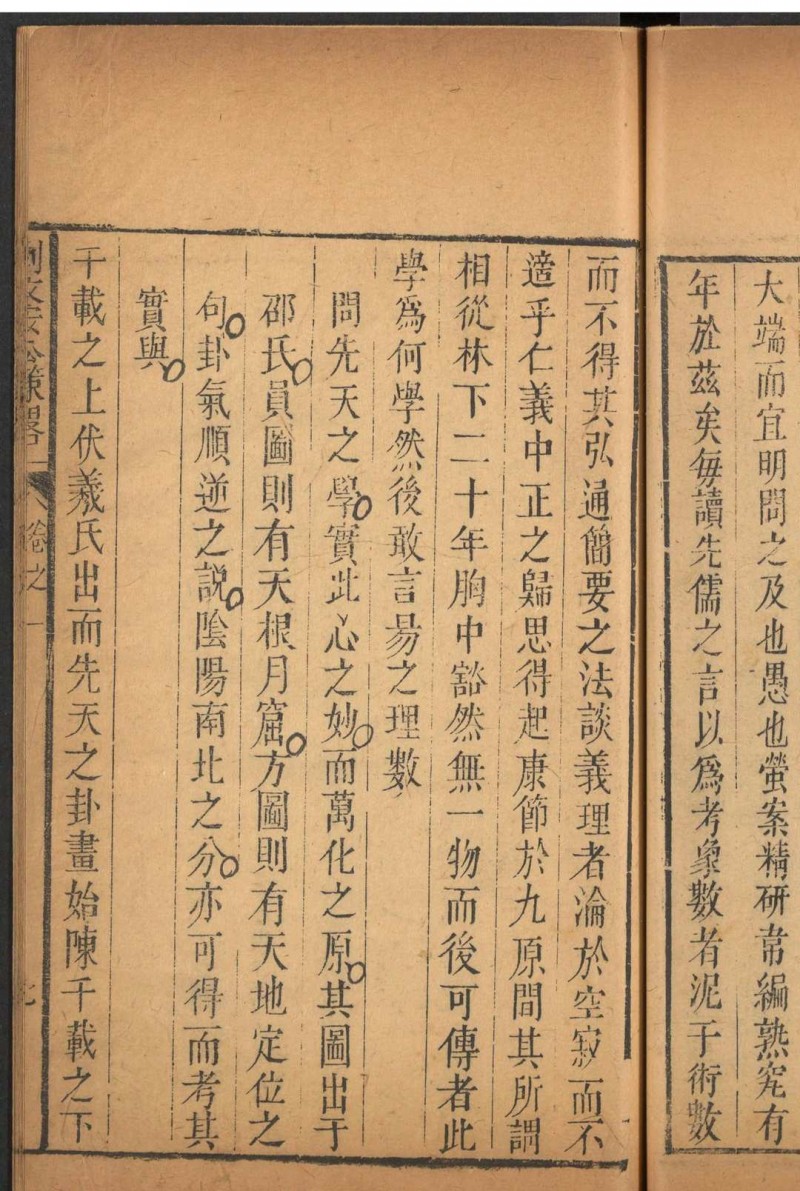 大端而宜明問之及也愚也螢案精研常編熟究有
年於茲矣每讀先儒之言以爲考象數者泥于術數
而不得其弘通簡要之法談義理者淪於空寂而不
適乎仁義中正之歸思得起康節於九原間其所謂
相從林下二十年胸中豁然無一物而後可傳者此
學爲何學然後敢言昜之理數
問先天之學實此心之妙而萬化之原其圖出于
邵氏員圖則有天根月窟方圖則有天地定位之
句卦氣順逆之說陰陽南北之分亦可得而考其
實與
千載之上伏羲氏出而先天之卦畫始陳千載之下
卷之一